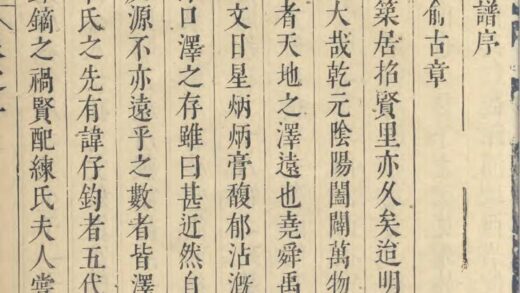 譜序
俞古章
築居招賢里亦久矣迨明
大哉乾元陰陽闔闢萬物
者天地之澤遠也堯舜禹
文日星炳炳膏馥郁沾溉
口澤之存雖曰甚近然自
源不亦遠乎之數者皆澤
氏之先有諱仔鈞者五代
鏑之禍賢配練氏夫人嘗